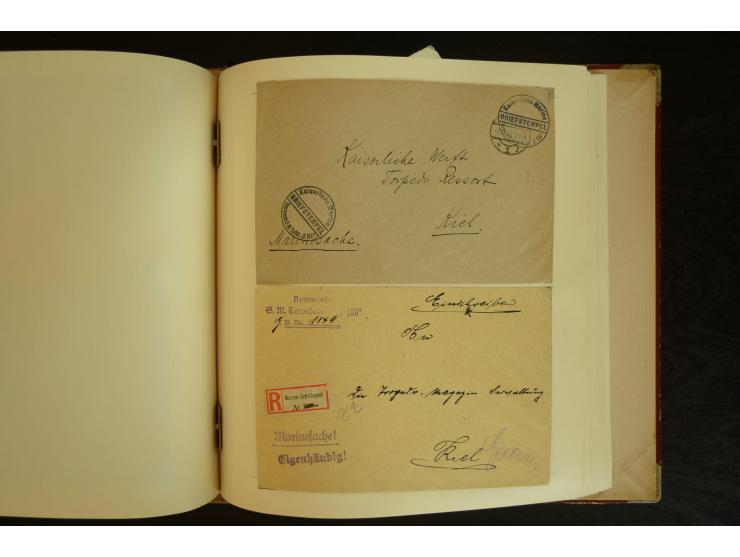 Kaiserliche Marine
BRIEFSTEMPEL
Kaiserliche Werft
Torpedo Ressort
Kiel.
Kaiserliche Marine
BRIEFSTEMPEL
Marinesache.
Kommando
S. M. Torpedoboot
B. Nr. 1149
Einschreiben
An
R
Marine-Schiffspost
№
die Torpedo-Magazin-Verwaltung
Marinesache!
Eigenhändig!
Kiel